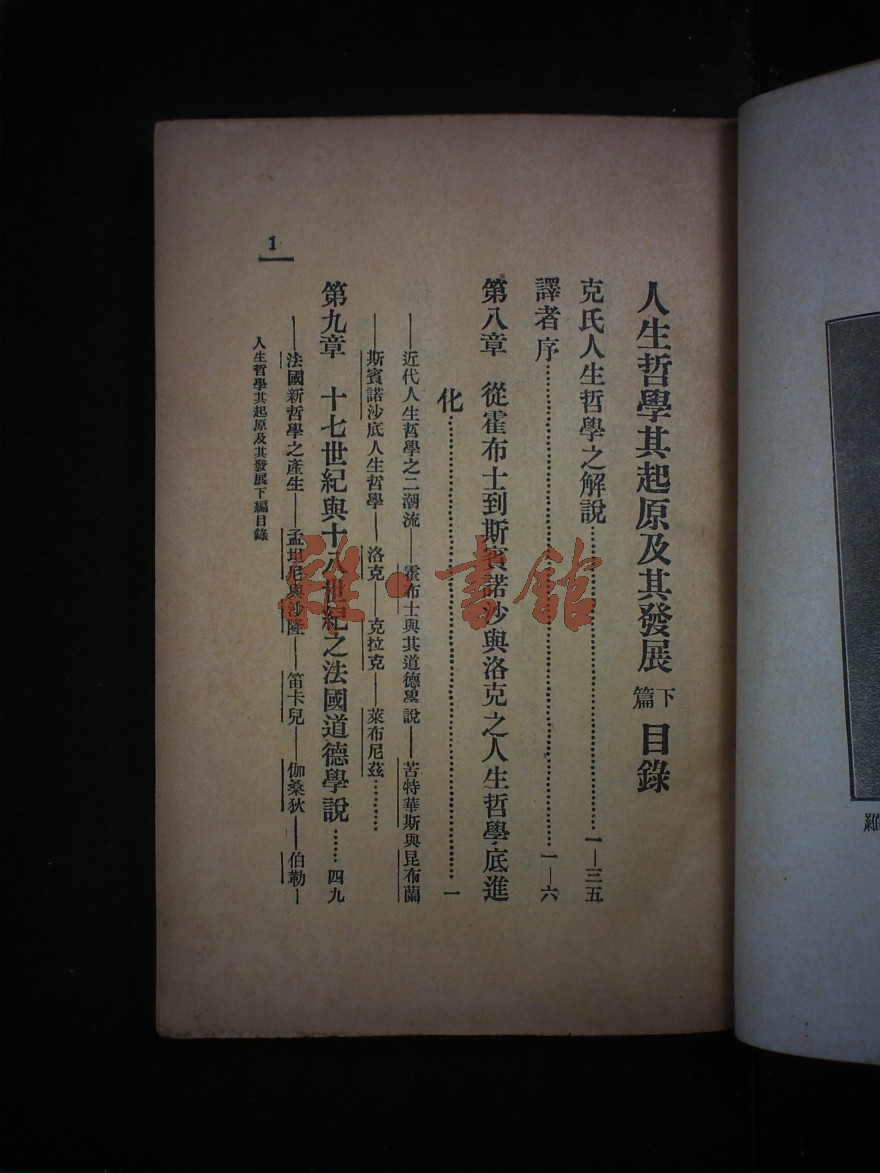 人生哲學其起原及其發展 下篇 目錄
克氏人生哲學之解說……一—三五
譯者序……一—六
第八章 從霍布士到斯賓諾沙與洛克之人生哲學底進
化……一
——近代人生哲學之二潮流——霍布士與其道德學說——苦特華斯與昆布蘭
——斯賓諾沙底人生哲學——洛克——克拉克——萊布尼茲……
第九章 十七世紀與十八世紀之法國道德學說……四九
——法國新哲學之產生——孟坦尼與沙隆——笛卡兒——伽桑狄——伯勒—
人生哲學其起原及其發展下編目錄
1
雜·書館
羅